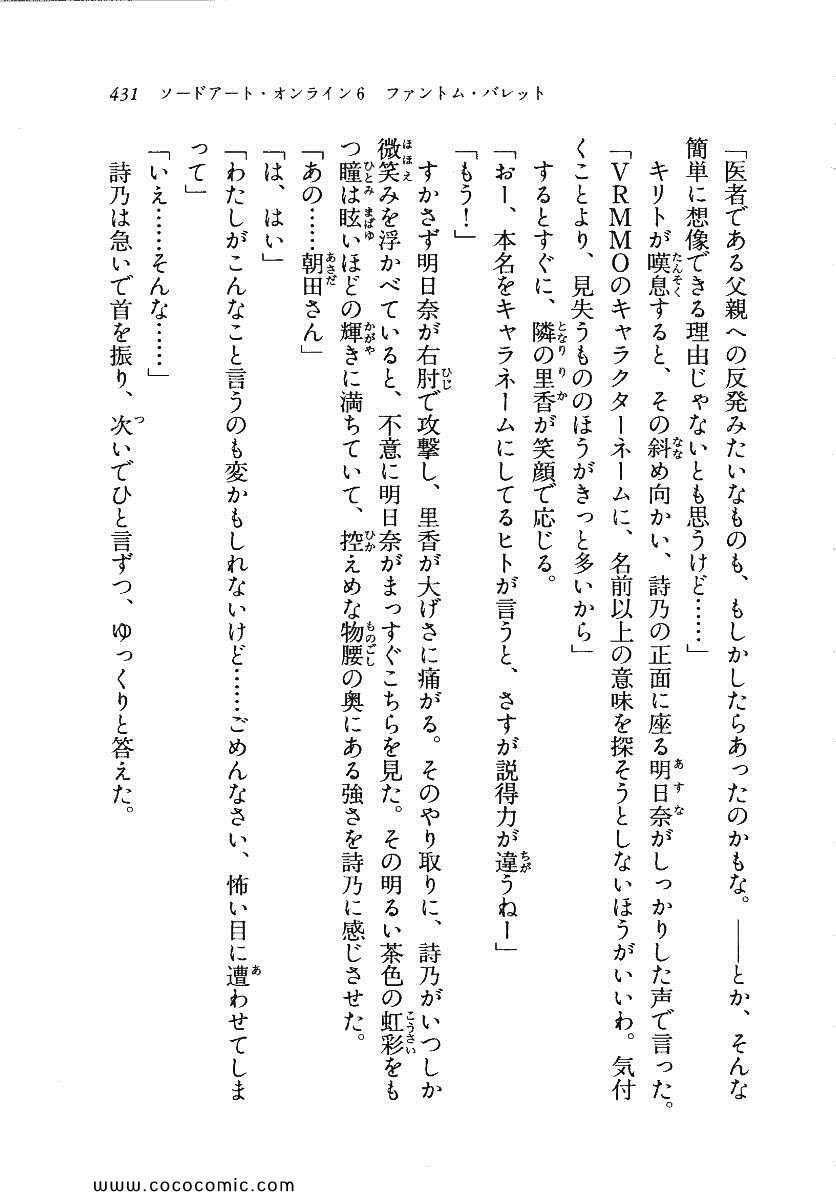 431　ソードアート・オンライン6　ファントム・バレット
「医者である父親への反発みたいなものも、もしかしたらあったのかもな。――とか、そんな
簡単に想像できる理由じゃないとも思うけど……」
キリトが嘆息すると、その斜め向かい、詩乃の正面に座る明日奈がしっかりした声で言った。
「VRMMOのキャラクターネームに、名前以上の意味を探そうとしないほうがいいわ。気付
くことより、見失うもののほうがきっと多いから」
するとすぐに、隣の里香が笑顔で応じる。
「おー、本名をキャラネームにしてるヒトが言うと、さすが説得力が違うねー」
「もう！」
すかさず明日奈が右肘で攻撃し、里香が大げさに痛がる。そのやり取りに、詩乃がいつしか
微笑みを浮かべていると、不意に明日奈がまっすぐこちらを見た。その明るい茶色の虹彩をも
つ瞳は眩いほどの輝きに満ちていて、控えめな物腰の奥にある強さを詩乃に感じさせた。
「あの……朝田さん」
「は、はい」
「わたしがこんなこと言うのも変かもしれないけど……ごめんなさい、怖い目に遭わせてしま
って」
「いえ……そんな……」
詩乃は急いで首を振り、次いでひと言ずつ、ゆっくりと答えた。
www.cococomic.com/